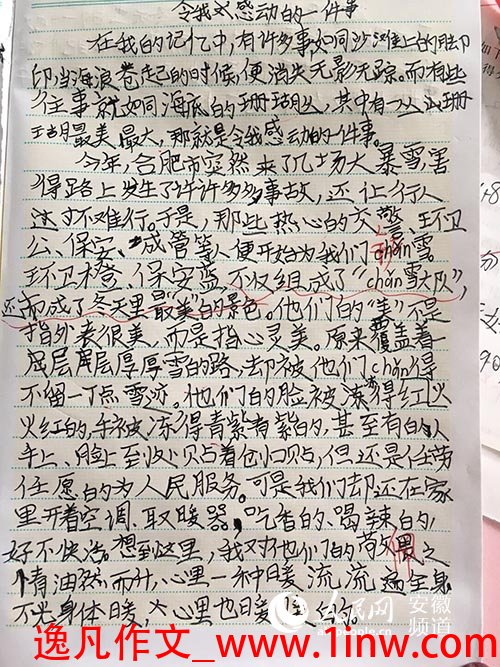 令我感动的一件事
在我的记忆中,有许多事如同沙滩上的脚
印,当海浪卷起的时候,便消失无影无踪。而有些
往事就如同海底的珊瑚从,其中有一从珊
瑚最美最大,那就是令我感动的一件事。
今年,合肥市突然来了几场大暴雪,害
得路上发生了许许多多事故,还让行人
过寸不难行。于是,那些热心的交警、环卫
公、保安、成管等人便开始为我们chǎn雪。
环卫橙、保安蓝,不仅组成了“chǎn雪大队”,
还而成了冬天里最“美”的景色。他们的“美”不是
指外表很美,而是指心灵美。原来覆盖着一
层层厚厚雪的路,却被他们chǎn得
不留一丁点雪迹。他们的脸被冻得红火
火红的,手被冻得青紫青紫的,甚至有的人
手上、脸上至少贴着创口贴,但还是任劳
任愿的为人民服务。可是我们却还在家
里开着空调、取暖器,吃香的、喝辣的,
好不快活。想到这里,我对他们的佩之
情油然而升,心里一种暖流流遍全身
不光身体暖,心里也暖
人民网 安徽频道
逸凡作文_www.1inw.com